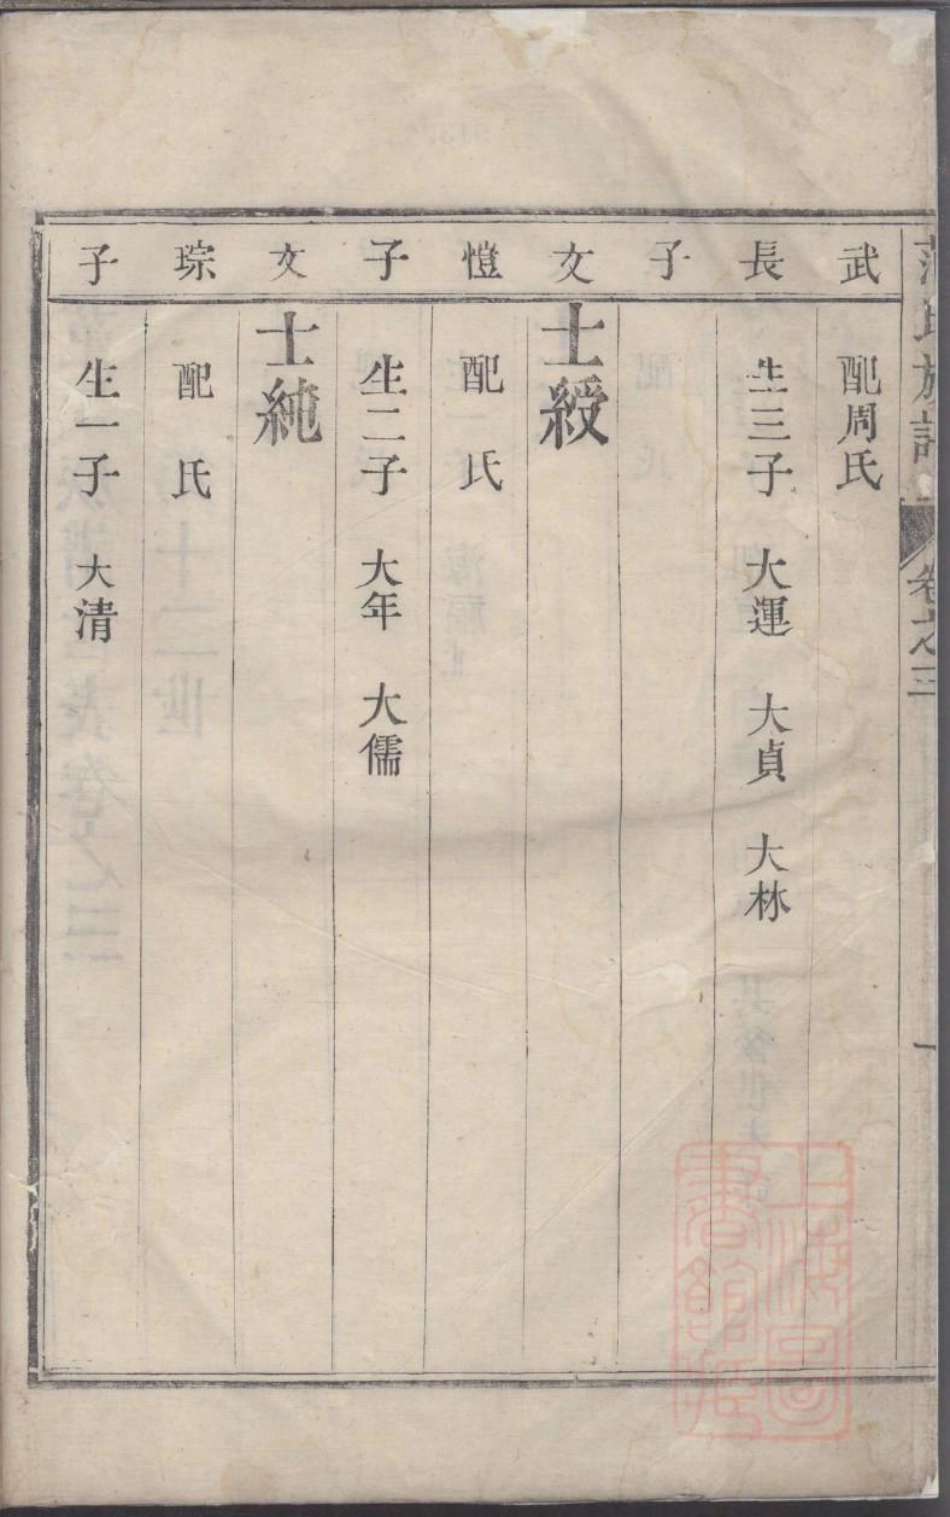 氏族譜 卷之三 一
武 配周氏
長 生三子 大運 大貞 大林
子
文 士綬
愷 配 氏
子 生二子 大年 大儒
文 士純
琮 配 氏
子 生一子 大清
上海圖書館藏